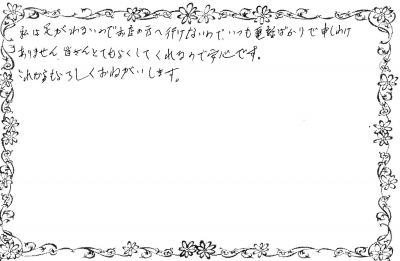 私は足がわるいのでお店の方へ行けないので、いつも電話ばかりで申しわけ
ありません 皆さんとてもよくしてくれるので安心です。
これからもよろしくおねがいします。